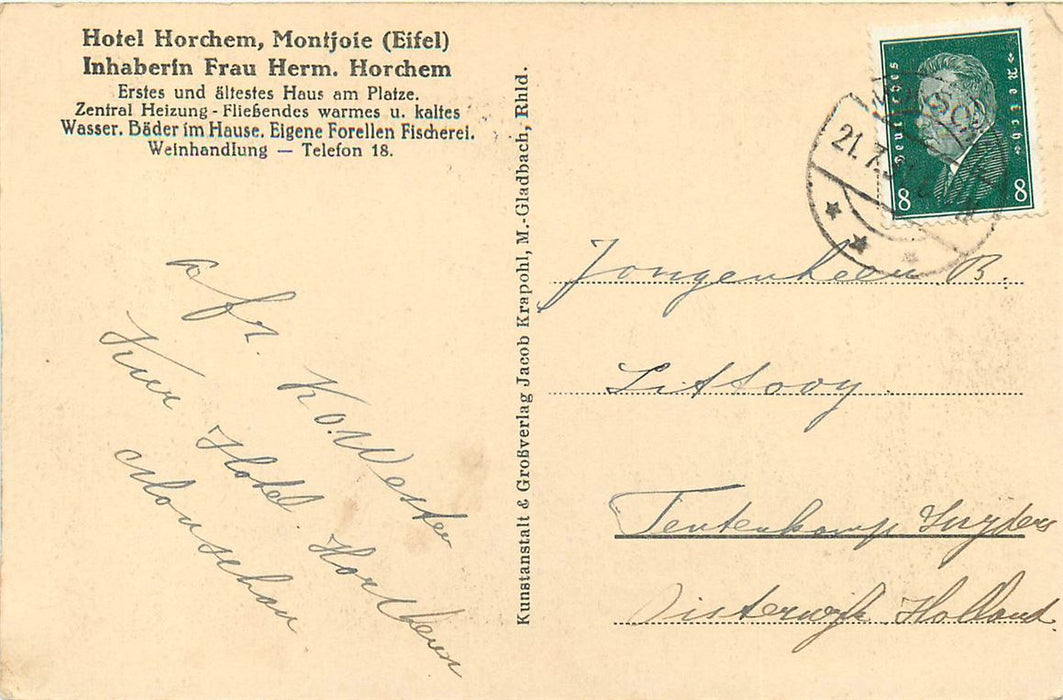 Hotel Horchem, Montjoie (Eifel)
Inhaberin Frau Herm. Horchem
Erstes und ältestes Haus am Platze.
Zentral Heizung - Fließendes warmes u. kaltes
Wasser. Bäder im Hause. Eigene Forellen Fischerei.
Weinhandlung — Telefon 18.
afz. K.O. Wester
Kur Hotel Horchem
Monschau
Kunstanstalt & Großverlag Jacob Krapohl, M.-Gladbach, Rhld.
Deutsches Reich
8 8
21.7.3
B.
Tentenkamp
Oisterwijk Holland.